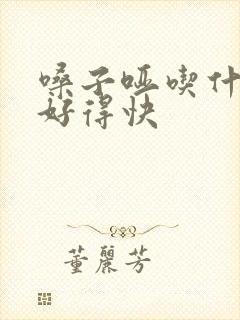 嗓子哑喫什
好得快
董丽芳